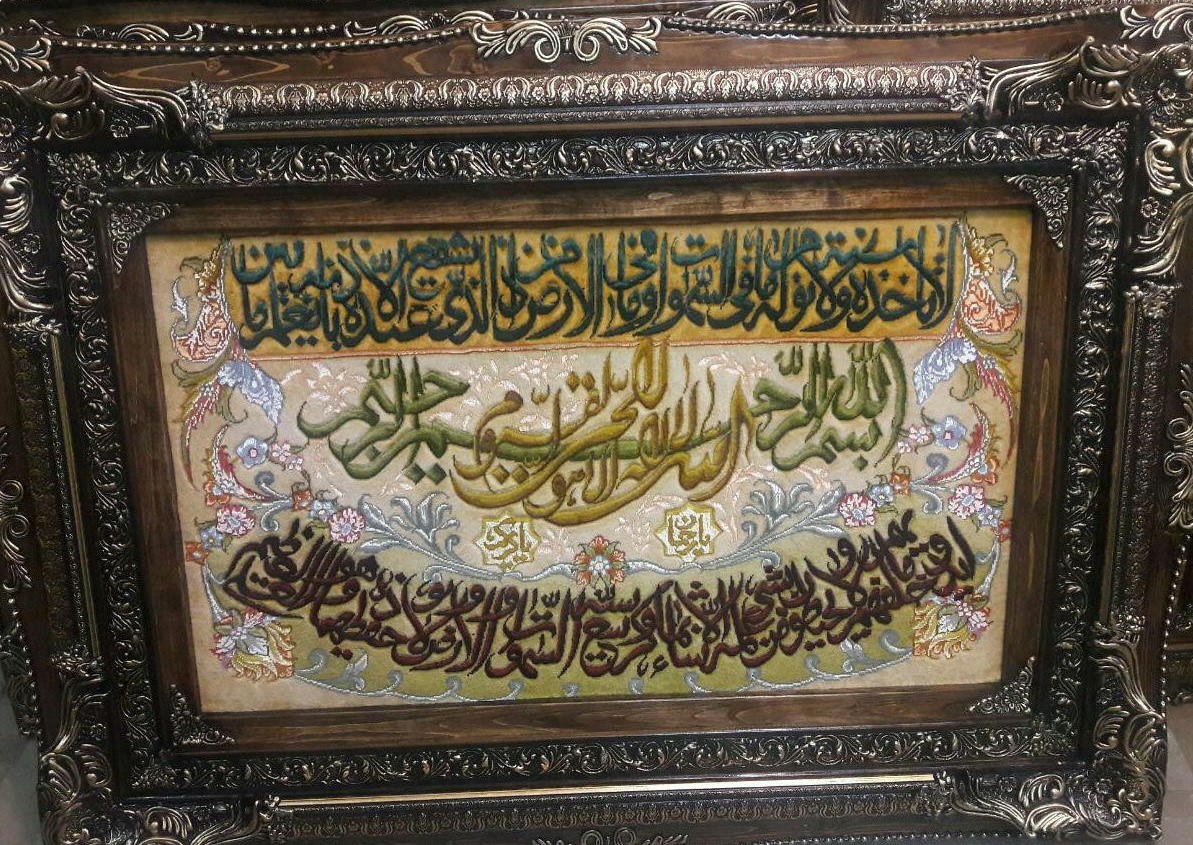 لا تأخذه سنة ولا نوم له ما في السموات وما في الارض من ذا الذي يشفع عنده الا باذنه يعلم ما بين
بسم الله الرحمن الرحيم
الله لا اله الا هو الحي القيوم
ايديهم وما خلفهم ولا يحيطون بشيء من علمه الا بما شاء وسع كرسيه السموات والارض ولا يؤده حفظهما وهو العلي العظيم